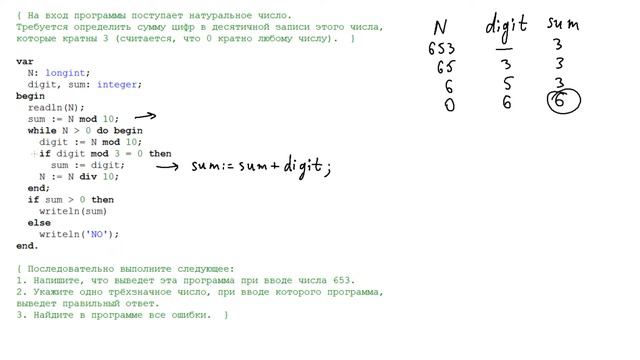 { На вход программы поступает натуральное число.
Требуется определить сумму цифр в десятичной записи этого числа,
которые кратны 3 (считается, что 0 кратно любому числу). }
var
N: longint;
digit, sum: integer;
begin
readln(N);
sum := N mod 10;
while N > 0 do begin
digit := N mod 10;
if digit mod 3 = 0 then
sum := digit;
sum:= sum + digit;
N := N div 10;
end;
if sum > 0 then
writeln(sum)
else
writeln('NO');
end.
{ Последовательно выполните следующее:
1. Напишите, что выведет эта программа при вводе числа 653.
2. Укажите одно трёхзначное число, при вводе которого программа,
выведет правильный ответ.
3. Найдите в программе все ошибки. }
N digit sum
653 — 3
65 3 3
6 5 3
0 6 6